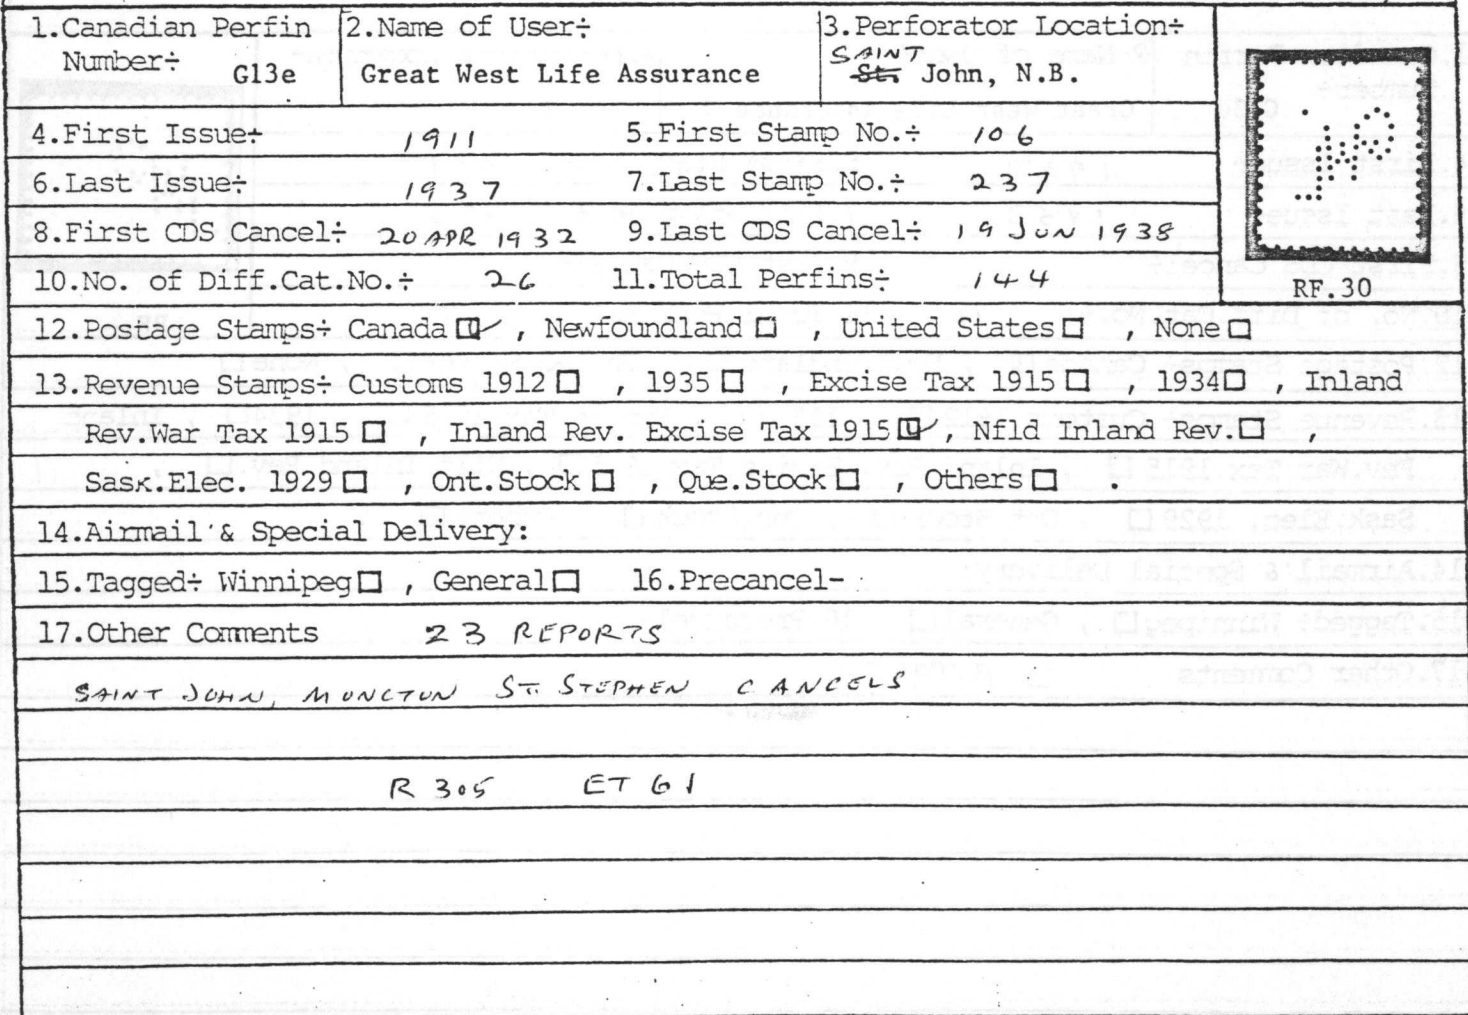 1.Canadian Perfin Number÷ G13e
2.Name of User÷ Great West Life Assurance
3.Perforator Location÷ SAINT St. John, N.B.
4.First Issue÷ 1911 5.First Stamp No.÷ 106
6.Last Issue÷ 1937 7.Last Stamp No.÷ 237
8.First CDS Cancel÷ 20 APR 1932 9.Last CDS Cancel÷ 19 JUN 1938
10.No. of Diff.Cat.No.÷ 26 11.Total Perfins÷ 144
RF.30
12.Postage Stamps÷ Canada ☑ , Newfoundland ☐ , United States ☐ , None ☐
13.Revenue Stamps÷ Customs 1912 ☐ , 1935 ☐ , Excise Tax 1915 ☐ , 1934 ☐ , Inland
Rev.War Tax 1915 ☐ , Inland Rev. Excise Tax 1915 ☑ , Nfld Inland Rev. ☐ ,
Sask.Elec. 1929 ☐ , Ont.Stock ☐ , Que.Stock ☐ , Others ☐ .
14.Airmail & Special Delivery:
15.Tagged÷ Winnipeg ☐ , General ☐ 16.Precancel-
17.Other Comments 23 REPORTS
SAINT JOHN, MONCTON ST. STEPHEN CANCELS
R 305 ET 61